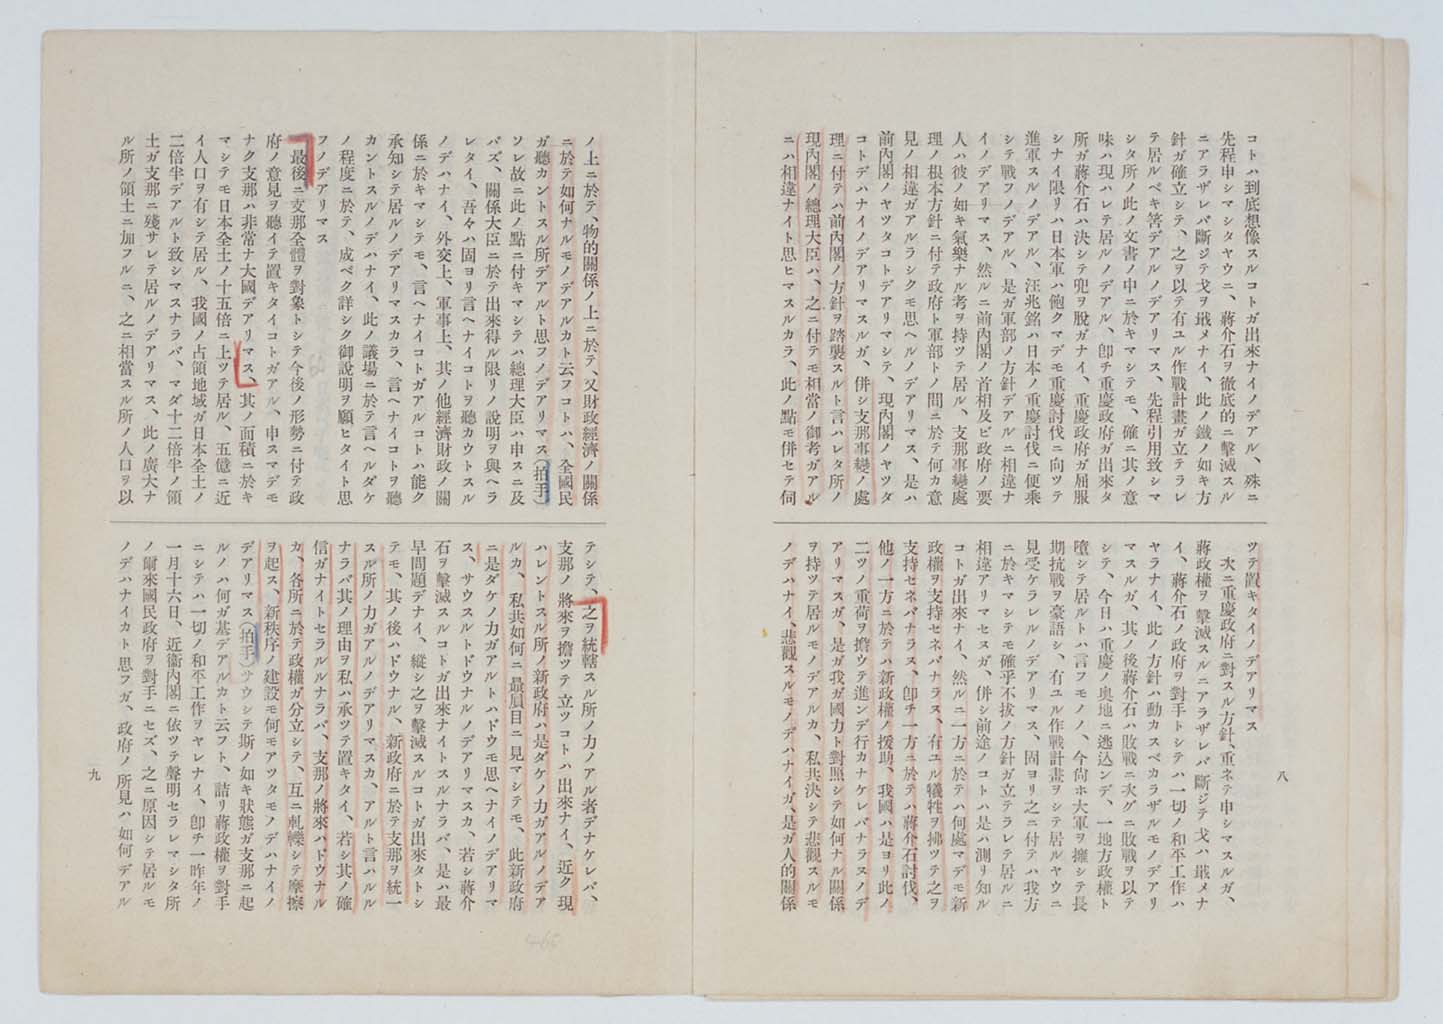 コトハ到底想像スルコトガ出來ナイノデアル、殊ニ
先程申シマシタヤウニ、蔣介石ヲ徹底的ニ擊滅スル
ニアラザレバ斷ジテ戈ヲ戢メナイ、此ノ鐵ノ如キ方
針ガ確立シテ、之ヲ以テ有ユル作戰計畫ガ立テラレ
テ居ルベキ筈デアルノデアリマス、先程引用致シマ
シタ所ノ此ノ文書ノ中ニ於キマシテモ、確ニ其ノ意
味ハ現ハレテ居ルノデアル、卽チ重慶政府ガ出來タ
所ガ蔣介石ハ決シテ兜ヲ脫ガナイ、重慶政府ガ屈服
シナイ限リハ日本軍ハ飽クマデモ重慶討伐ニ向ツテ
進軍スルノデアル、汪兆銘ハ日本ノ重慶討伐ニ便乘
シテ戰フノデアル、是ガ軍部ノ方針デアルニ相違ナ
イノデアリマス、然ルニ前內閣ノ首相及ビ政府ノ要
人ハ彼ノ如キ氣樂ナル考ヲ持ツテ居ル、支那事變處
理ノ根本方針ニ付テ政府ト軍部トノ間ニ於テ何カ意
見ノ相違ガアルラシクモ思ヘルノデアリマス、是ハ
前內閣ノヤツタコトデアリマシテ、現內閣ノヤツタ
コトデハナイノデアリマスルガ、併シ支那事變ノ處
理ニ付テハ前內閣ノ方針ヲ踏襲スルト言ハレタ所ノ
現內閣ノ總理大臣ハ、之ニ付テモ相當ノ御考ガアル
ニハ相違ナイト思ヒマスルカラ、此ノ點モ併セテ伺
ツテ置キタイノデアリマス
次ニ重慶政府ニ對スル方針、重ネテ申シマスルガ、
蔣政權ヲ擊滅スルニアラザレバ斷ジテ戈ハ戢メナ
イ、蔣介石ノ政府ヲ對手トシテハ一切ノ和平工作ハ
ヤラナイ、此ノ方針ハ動カスベカラザルモノデアリ
マスルガ、其ノ後蔣介石ハ敗戰ニ次グニ敗戰ヲ以テ
シテ、今日ハ重慶ノ奧地ニ逃込ンデ、一地方政權ト
墮シテ居ルトハ言フモノノ、今尙ホ大軍ヲ擁シテ長
期抗戰ヲ豪語シ、有ユル作戰計畫ヲシテ居ルヤウニ
見受ケラレルノデアリマス、固ヨリ之ニ付テハ我方
ニ於キマシテモ確乎不拔ノ方針ガ立テラレテ居ルニ
相違アリマセヌガ、併シ前途ノコトハ是ハ測リ知ル
コトガ出來ナイ、然ルニ一方ニ於テハ何處マデモ新
政權ヲ支持セネバナラヌ、有ユル犧牲ヲ拂ツテ之ヲ
支持セネバナラヌ、卽チ一方ニ於テハ蔣介石討伐、
他ノ一方ニ於テハ新政權ノ援助、我國ハ是ヨリ此ノ
二ツノ重荷ヲ擔ウテ進ンデ行カナケレバナラヌノデ
アリマスガ、是ガ我ガ國力ト對照シテ如何ナル關係
ヲ持ツテ居ルモノデアルカ、私共決シテ悲觀スルモ
ノデハナイ、悲觀スルモノデハナイガ、是ガ人的關係
八
ノ上ニ於テ、物的關係ノ上ニ於テ、又財政經濟ノ關係
ニ於テ如何ナルモノデアルカト云フコトハ、全國民
ガ聽カントスル所デアルト思フノデアリマス(拍手)
ソレ故ニ此ノ點ニ付キマシテハ總理大臣ハ申スニ及
バズ、關係大臣ニ於テ出來得ル限リノ說明ヲ與ヘラ
レタイ、吾々ハ固ヨリ言ヘナイコトヲ聽カウトスル
ノデハナイ、外交上、軍事上、其ノ他經濟財政ノ關
係ニ於キマシテモ、言ヘナイコトガアルコトハ能ク
承知シテ居ルノデアリマスカラ、言ヘナイコトヲ聽
カントスルノデハナイ、此ノ議場ニ於テ言ヘルダケ
ノ程度ニ於テ、成ベク詳シク御說明ヲ願ヒタイト思
フノデアリマス
最後ニ支那全體ヲ對象トシテ今後ノ形勢ニ付テ政
府ノ意見ヲ聽イテ置キタイコトガアル、申スマデモ
ナク支那ハ非常ナ大國デアリマス、其ノ面積ニ於キ
マシテモ日本全土ノ十五倍ニ上ツテ居ル、五億ニ近
イ人口ヲ有シテ居ル、我國ノ占領地域ガ日本全土ノ
二倍半デアルト致シマスナラバ、マダ十二倍半ノ領
土ガ支那ニ殘サレテ居ルノデアリマス、此ノ廣大ナ
ル所ノ領土ニ加フルニ、之ニ相當スル所ノ人口ヲ以
テシテ、之ヲ統轄スル所ノ力ノアル者デナケレバ、
支那ノ將來ヲ擔ツテ立ツコトハ出來ナイ、近ク現
ハレントスル所ノ新政府ハ是ダケノ力ガアルノデア
ルカ、私共如何ニ最屓目ニ見マシテモ、此新政府
ニ是ダケノ力ガアルトハドウモ思ヘナイノデアリマ
ス、サウスルトドウナルノデアリマスカ、若シ蔣介
石ヲ擊滅スルコトガ出來ナイトスルナラバ、是ハ最
早問題デナイ、縱シ之ヲ擊滅スルコトガ出來タトシ
テモ、其ノ後ハドウナル、新政府ニ於テ支那ヲ統一
スル所ノ力ガアルノデアリマスカ、アルト言ハルル
ナラバ其ノ理由ヲ私ハ承ツテ置キタイ、若シ其ノ確
信ガナイトセラルルナラバ、支那ノ將來ハドウナル
カ、各所ニ於テ政權ガ分立シテ、互ニ軋轢シテ摩擦
ヲ起ス、新秩序ノ建設モ何モアツタモノデハナイノ
デアリマス(拍手)サウシテ斯ノ如キ狀態ガ支那ニ起
ルノハ何ガ基デアルカト云フト、詰リ蔣政權ヲ對手
ニシテハ一切ノ和平工作ヲヤレナイ、卽チ一昨年ノ
一月十六日、近衞內閣ニ依ツテ聲明セラレマシタ所
ノ爾來國民政府ヲ對手ニセズ、之ニ原因シテ居ルモ
ノデハナイカト思フガ、政府ノ所見ハ如何デアル
九
465